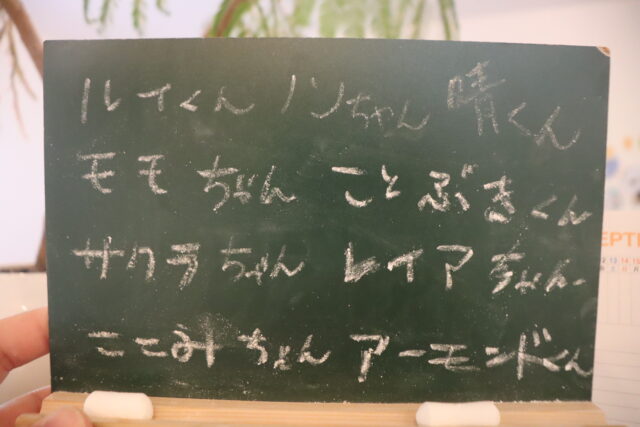 ルイくん ノンちゃん 晴くん
モモちゃん ことぶきくん
サクラちゃん レイアちゃん
ここみちゃん アーモンドくん
SEPTE
12 13 14 15